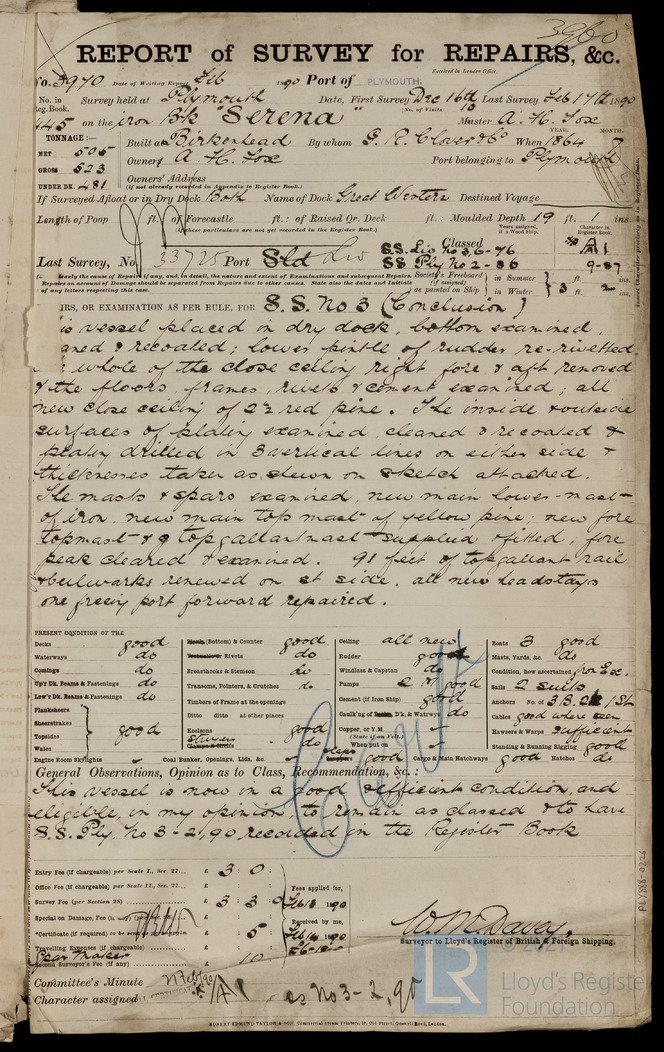 3960
REPORT of SURVEY for REPAIRS, &c.
No. 3970 Date of Writing Report Feb 1890 Port of PLYMOUTH. Received in London Office.
No. in Reg. Book. Survey held at Plymouth Date, First Survey Dec 16th Last Survey Feb 17th 1890
(No. of Visits 10
445 on the iron Bk "Serena" Master A. H. Fox
TONNAGE:— YEAR. MONTH.
NET 505 Built at Birkenhead By whom G. R. Clover & Co When 1864 7
GROSS 523 Owners A. H. Fox Port belonging to Plymouth
UNDER DK. 481 Owners' Address
(if not already recorded in Appendix to Register Book.)
If Surveyed Afloat or in Dry Dock Both Name of Dock Great Western Destined Voyage
Length of Poop ft. of Forecastle ft.: of Raised Qr. Deck ft.: Moulded Depth 19 ft. 1 ins.
(if these particulars are not yet recorded in the Register Book.)
Years assigned, if a Wood Ship. Character in Register Book.
Last Survey, No. 33725 Port Sld Liv Classed A1
SS. Liv No 3, 6-76
SS Ply No 2-86 9-87
Society's Freeboard (if assigned) as painted on Ship in Summer ft. ins.
in Winter 3 2
IRS, OR EXAMINATION AS PER RULE, FOR S. S. No 3 (Conclusion)
is vessel placed in dry dock, bottom examined,
aned & recoated; lower pintle of rudder re-rivetted.
whole of the close ceiling right fore & aft removed
& the floors, frames, rivets & cement examined; all
new close ceiling of 2½ red pine. The inside & outside
surfaces of plating examined cleaned & recoated &
plating drilled in 3 vertical lines on either side &
thicknesses taken as shewn on sketch attached.
The masts & spars examined, new main lower-mast
of iron, new main top mast of yellow pine; new fore
topmast & topgallantmast supplied & fitted, fore
peak cleared & examined. 91 feet of topgallant rail
& bulwarks renewed on st side. all new headstays
one freeing port forward repaired.
PRESENT CONDITION OF THE
Decks good
Waterways do
Comings do
Up'r Dk. Beams & Fastenings do
Low'r Dk. Beams & Fastenings do
Planksheers
Sheerstrakes
Topsides good
Wales
Engine Room Skylights
Plank (Bottom) & Counter good
Treenails or Rivets do
Breasthooks & Stemson do
Transoms, Pointers, & Crutches do
Timbers of Frame at the openings
Ditto ditto at other places
Keelsons good
Stringers do
Coal Bunker, Openings, Lids, &c.
Ceiling all new
Rudder good
Windlass & Capstan do
Pumps 2 M good
Cement (if Iron Ship) good
Caulk'g of Bottom, D'k, & Watrwys do
Copper, or Y.M.
(State if on Felt.)
When put on
good Cargo & Main Hatchways good Hatches do
Boats 3 good
Masts, Yards, &c. do
Condition, how ascertained from Exn.
Sails 2 suits
Anchors No. of 3 B. 1 St
Cables good where seen
Hawsers & Warps sufficient
Standing & Running Rigging good
General Observations, Opinion as to Class, Recommendation, &c.:
This vessel is now in a good & efficient condition, and
eligible, in my opinion, to remain as classed & to have
S.S. Ply. No 3-2,90 recorded in the Register Book
Entry Fee (if chargeable) per Scale I., Sec. 27... £ 3 0
Office Fee (if chargeable) per Scale II., Sec. 27... £
Survey Fee (per Section 28) £ 3 3 0
Special on Damage, Fee (if any) £
Certificate (if required) £ 5
Travelling Expenses (if chargeable) £
Second Surveyor's Fee (if any) £ 10
Fees applied for, Feb 13 1890
Received by me, Feb 14 1890
W. M. Davey.
Surveyor to Lloyd's Register of British & Foreign Shipping.
Committee's Minute
Character assigned A1 ss No 3-2,90
ROBERT EDMUND TAYLOR & SON, Commercial Steam Printers, 19, Old Street, Goswell Road, London.
PLY888-0226
LR Lloyd's Register
Foundation